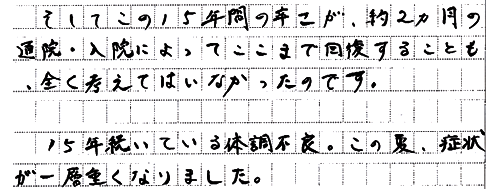 そしてこの15年間の辛さが、約2カ月の
通院・入院によってここまで回復することも
、全く考えてはいなかったのです。
15年続いている体調不良。この夏、症状
が一層重くなりました。